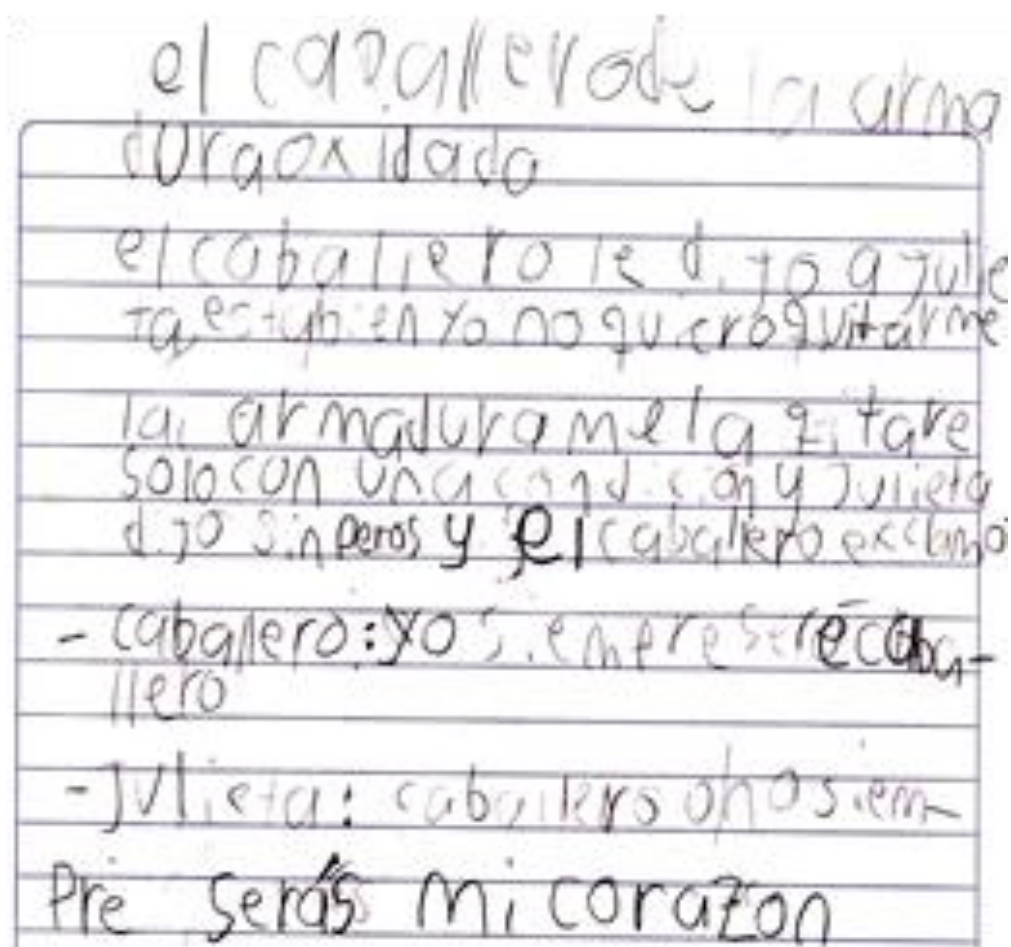 el caballerode la arma
duraoxidada
elcaballero le dijo a julie
ta, estabien yo no quieroquitarme
la armadura me la qitare
solo con una condición y julieta
dijo sin peros y el caballero exclamo
- caballero: yo siempre seré caba-
llero
- julieta: caballero o no siem-
Pre serás mi corazon